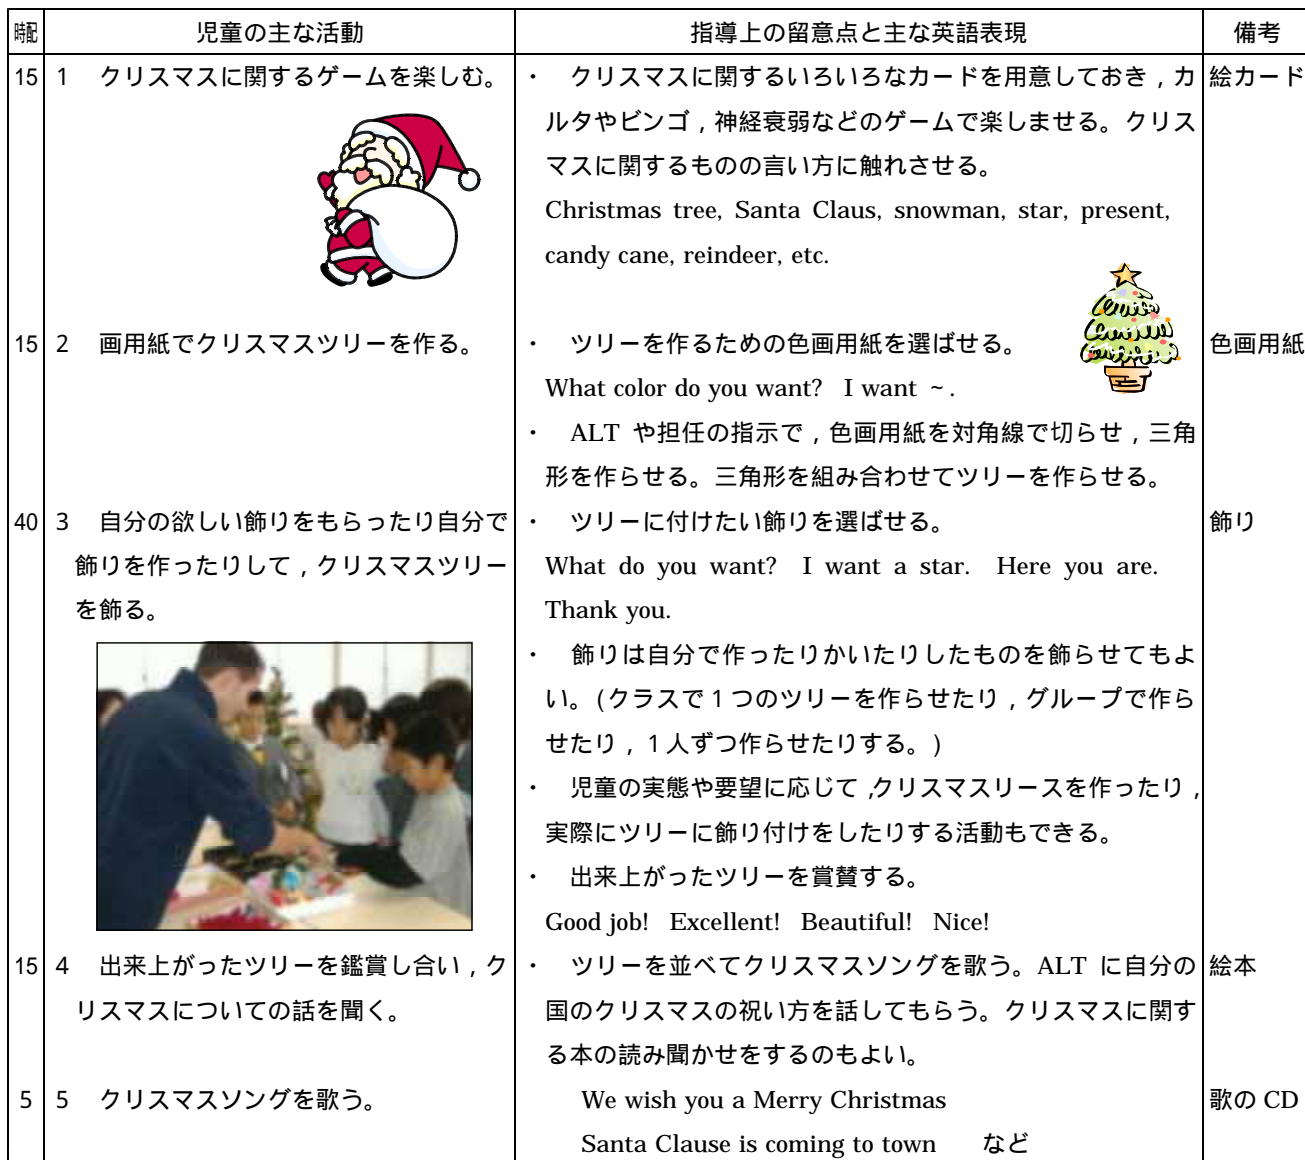 時配 児童の主な活動 指導上の留意点と主な英語表現 備考
15 1 クリスマスに関するゲームを楽しむ。 ・ クリスマスに関するいろいろなカードを用意しておき，カ 絵カード
ルタやビンゴ，神経衰弱などのゲームで楽しませる。クリス
マスに関するものの言い方に触れさせる。
Christmas tree, Santa Claus, snowman, star, present,
candy cane, reindeer, etc.
15 2 画用紙でクリスマスツリーを作る。 ・ ツリーを作るための色画用紙を選ばせる。 色画用紙
What color do you want? I want ~.
・ ALT や担任の指示で，色画用紙を対角線で切らせ，三角
形を作らせる。三角形を組み合わせてツリーを作らせる。
40 3 自分の欲しい飾りをもらったり自分で ・ ツリーに付けたい飾りを選ばせる。 飾り
飾りを作ったりして，クリスマスツリー What do you want? I want a star. Here you are.
を飾る。 Thank you.
・ 飾りは自分で作ったりかいたりしたものを飾らせてもよ
い。(クラスで１つのツリーを作らせたり，グループで作ら
せたり，１人ずつ作らせたりする。)
・ 児童の実態や要望に応じて，クリスマスリースを作ったり，
実際にツリーに飾り付けをしたりする活動もできる。
・ 出来上がったツリーを賞賛する。
Good job! Excellent! Beautiful! Nice!
15 4 出来上がったツリーを鑑賞し合い，ク ・ ツリーを並べてクリスマスソングを歌う。ALT に自分の 絵本
リスマスについての話を聞く。 国のクリスマスの祝い方を話してもらう。クリスマスに関す
る本の読み聞かせをするのもよい。
5 5 クリスマスソングを歌う。 We wish you a Merry Christmas 歌の CD
Santa Clause is coming to town など